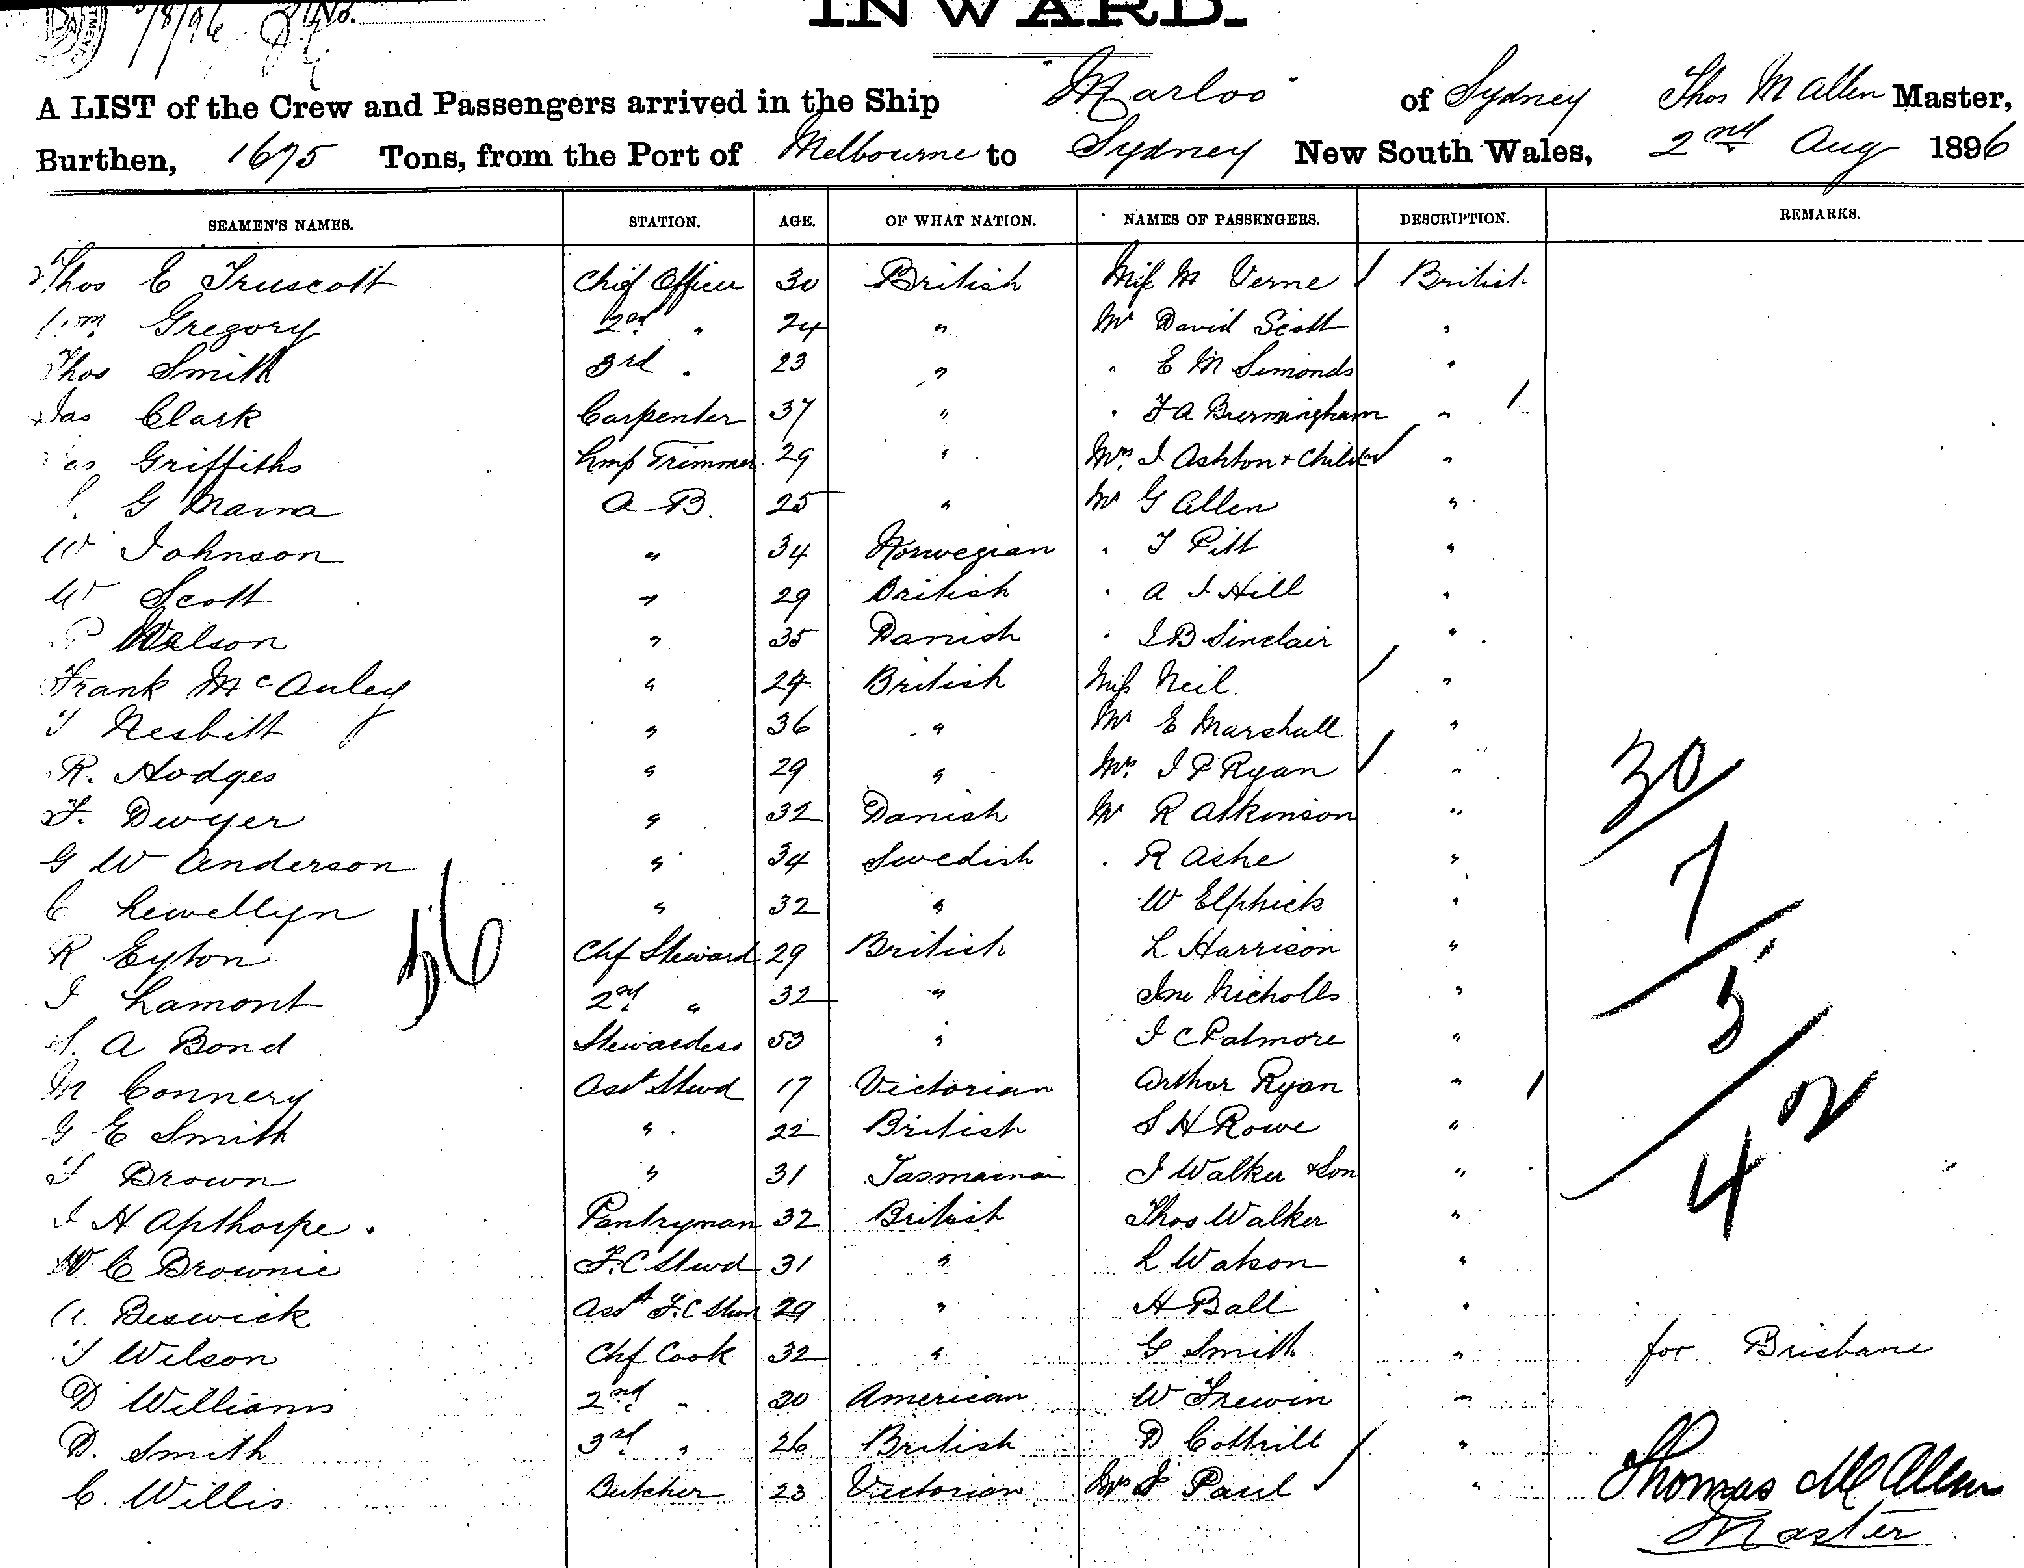 3/8/96
No.
INWARD.
A LIST of the Crew and Passengers arrived in the Ship "Marloo" of Sydney Thos M Allen Master,
Burthen, 1675 Tons, from the Port of Melbourne to Sydney New South Wales, 2nd Aug 1896
SEAMEN'S NAMES. STATION. AGE. OF WHAT NATION. NAMES OF PASSENGERS. DESCRIPTION. REMARKS.
Thos E Truscott Chief Officer 30 British Miss M Verne British
Wm Gregory 2nd " 24 " Mr David Scott "
Thos Smith 3rd " 23 " " E M Simonds "
Jas Clark Carpenter 37 " " F A Burmingham "
Griffiths Lmp Trimmer 29 " Mrs J Ashton + Child "
G A B. 25 " Mr G Allen "
W Johnson " 34 Norwegian " T Pitt "
W Scott " 29 British " A J Hill "
P Welson " 35 Danish " J B Sinclair "
Frank McAuley " 29 British Miss Neil "
T Nesbitt " 36 " Mr E Marshall "
R. Hodges " 29 " Mrs J P Ryan "
F. Dwyer " 32 Danish Mr R Atkinson "
G W Anderson " 34 Swedish " R Ashe "
C Lewellyn " 32 " W Elphick "
R Eyton Chf Steward 29 British L Harrison "
J Lamont 2nd " 32 " Jno Nicholls "
S. A Bond Stewardess 53 " J C Patmore "
M Connery Asst Stwd 17 Victorian Arthur Ryan "
G E Smith " 22 British S H Rowe "
T Brown " 31 Tasmania J Walker & Son "
J H Apthorpe Pantryman 32 British Thos Walker "
W C Brownie F.C Stwd 31 " L Watson "
A. Beswick Asst F.C Stwd 29 " H Ball "
T Wilson Chf Cook 32 " G Smith " for Brisbane
D Williams 2nd " 30 American W Trewin "
D. Smith 3rd " 26 British D Cottrill "
C. Willis Butcher 23 Victorian Mr J Paul "
56
30
7
5
42
Thomas M Allen
Master